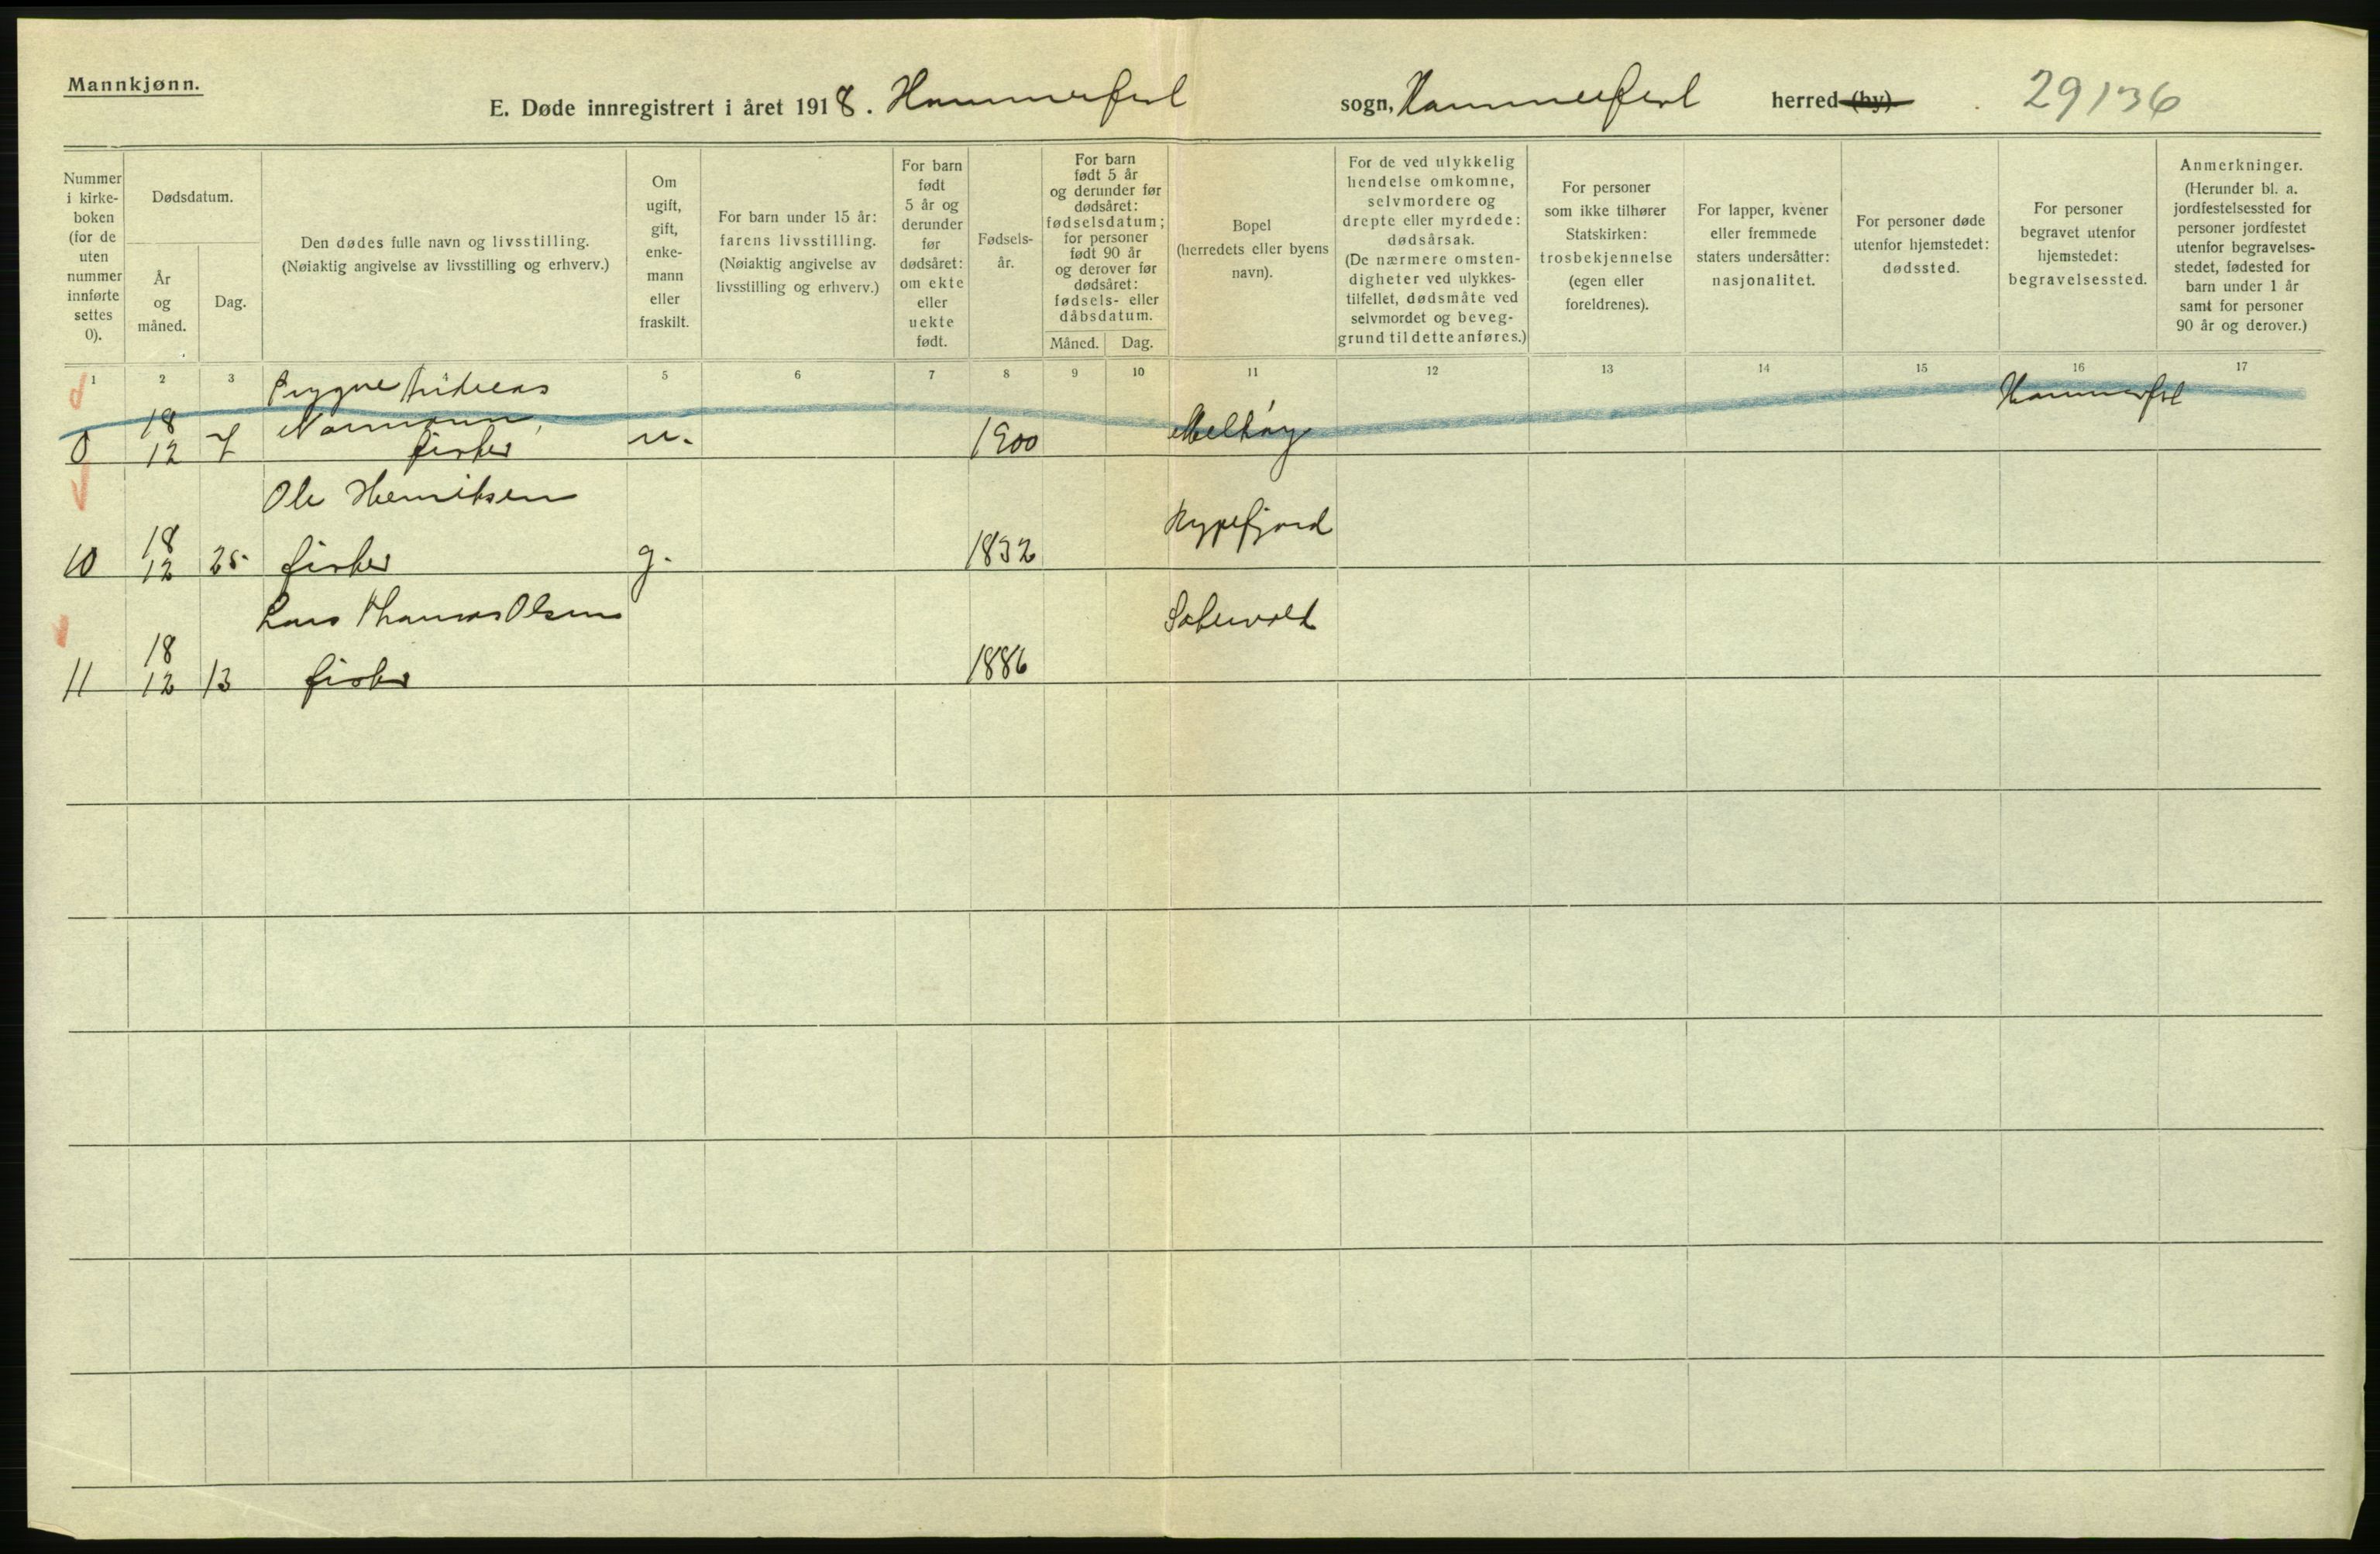 Mannkjønn.
E. Døde innregistrert i året 1918. Hammerfest sogn, Hammerfest herred (by) . 29136
Nummer
i kirke-
boken
(for de
uten
nummer
innførte
settes
0).
Dødsdatum.
År
og
måned.
Dag.
Den dødes fulle navn og livsstilling.
(Nøiaktig angivelse av livsstilling og erhverv.)
Om
ugift,
gift,
enke-
mann
eller
fraskilt.
For barn under 15 år:
farens livsstilling.
(Nøiaktig angivelse av
livsstilling og erhverv.)
For barn
født
5 år og
derunder
før
dødsåret:
om ekte
eller
uekte
født.
Fødsels-
år.
For barn
født 5 år
og derunder før
dødsåret:
fødselsdatum;
for personer
født 90 år
og derover før
dødsåret:
fødsels- eller
dåbsdatum.
Måned. Dag.
Bopel
(herredets eller byens
navn).
For de ved ulykkelig
hendelse omkomne,
selvmordere og
drepte eller myrdede:
dødsårsak.
(De nærmere omsten-
digheter ved ulykkes-
tilfellet, dødsmåte ved
selvmordet og beveg-
grund til dette anføres.)
For personer
som ikke tilhører
Statskirken:
trosbekjennelse
(egen eller
foreldrenes).
For lapper, kvener
eller fremmede
staters undersåtter:
nasjonalitet.
For personer døde
utenfor hjemstedet:
dødssted.
For personer
begravet utenfor
hjemstedet:
begravelsessted.
Anmerkninger.
(Herunder bl. a.
jordfestelsessted for
personer jordfestet
utenfor begravelses-
stedet, fødested for
barn under 1 år
samt for personer
90 år og derover.)
1 2 3 4 5 6 7 8 9 10 11 12 13 14 15 16 17
Trygve Andreas
18 Normann, Hammerfest
0 12 7 fisker u. 1900
Ole Henriksen
18 Rypefjord
10 12 25 fisker g. 1832
Lars Thomas Olsen
18
11 12 13 fisker 1886